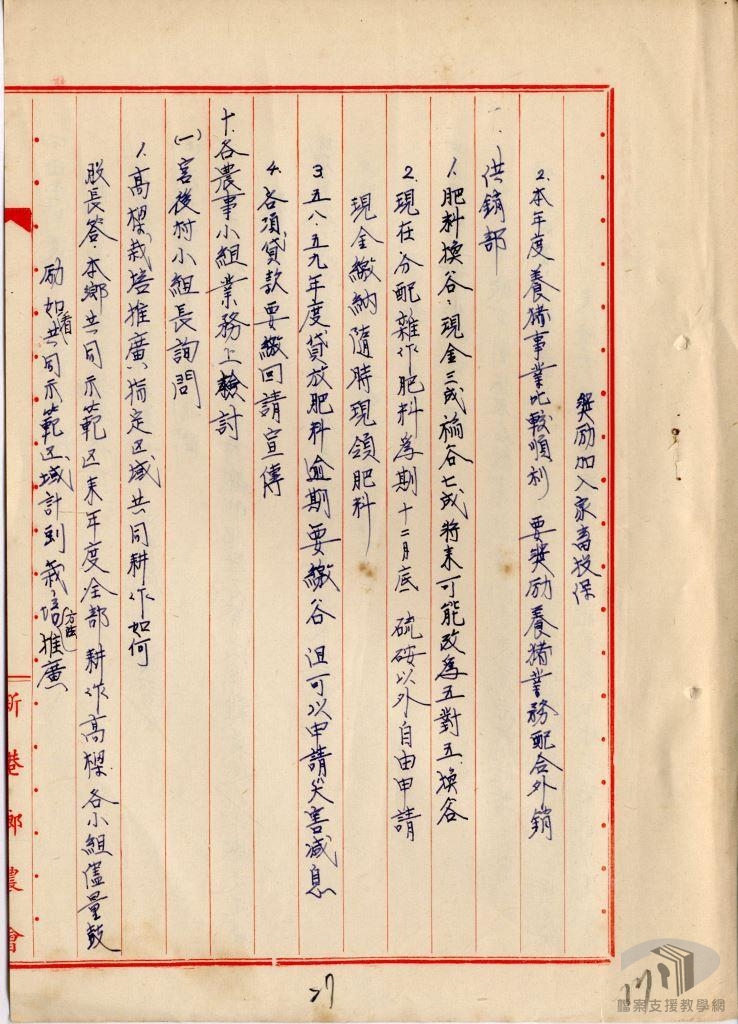 獎励加入家畜投保
2.本年度養猪事業比較順利 要獎励養猪業務配合外銷
供銷部
1.肥料換谷:現金三成稲谷七成將来可能改為五對五換谷
2.現在分配雜作肥料為期十二月底 硫銨以外自由申請
現金繳納隨時現領肥料
3.五八.五九年度貸放肥料逾期要繳谷 但可以申請災害減息
4.各項貸款要繳回請宣傳
十.各農事小組業務上檢討
(一)宮後村小組長詢問
1.高樑栽培推廣指定区域共同耕作如何
股長答:本鄉共同示範区来年度全部耕作高樑各小組儘量鼓
励如看共同示範区域計劃栽培方法推廣
新港鄉農會
27
檔案支援教學網